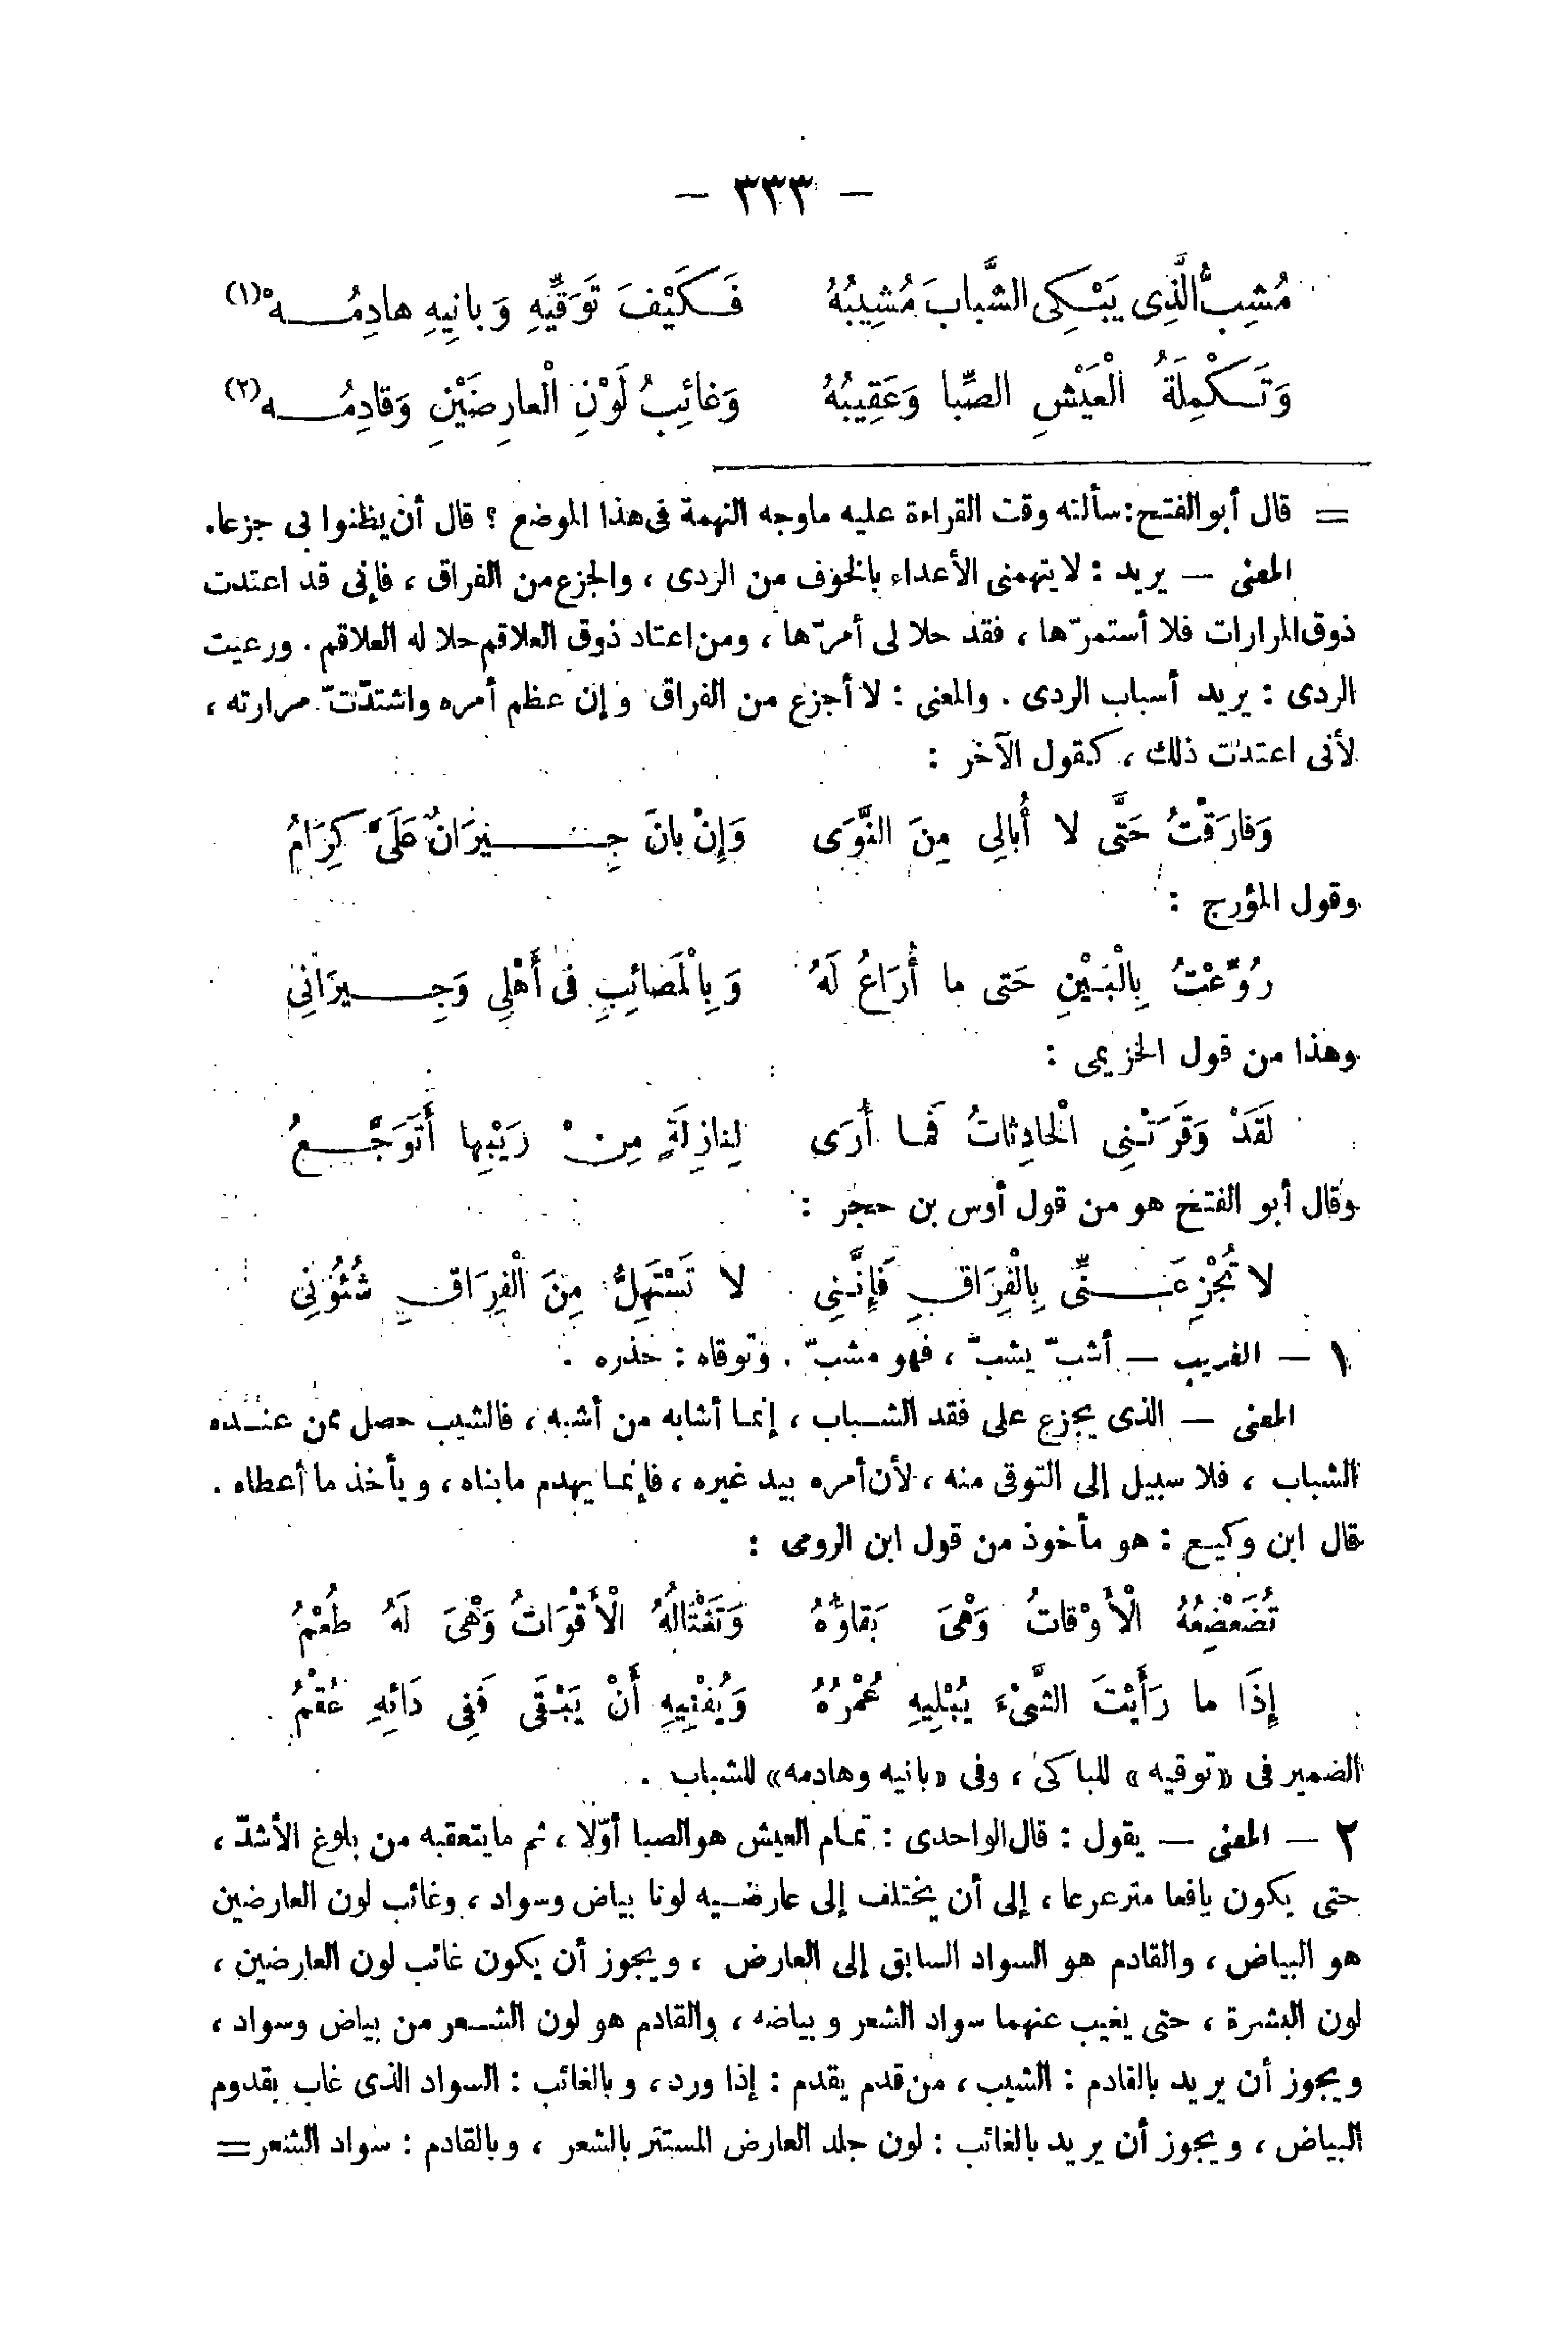 — ٣٣٣ —
مُشِبُّ الَّذِى يَبْكِى الشَّبابَ مُشِيبُهُ فَكَيْفَ تَوَقِّيْهِ وَبانِيهِ هادِمُهْ (١)
وَتَكْمِلَةُ الْعَيْشِ الصِّبا وَعَقِيبُهُ وَغائِبُ لَوْنِ الْعارِضَيْنِ وَقادِمُه (٢)
= قال أبو الفتح: سألته وقت القراءة عليه ماوجه التهمة فى هذا الموضع ؟ قال أن يظنوا بى جزعا.
المعنى — يريد : لا يتهمنى الأعداء بالخوف من الردى ، والجزع من الفراق ، فإنى قد اعتدت
ذوق المرارات فلا أستمرّها ، فقد حلا لى أمرّها ، ومن اعتاد ذوق العلاقم حلا له العلاقم . ورعيت
الردى : يريد أسباب الردى . والمعنى : لا أجزع من الفراق وإن عظم أمره واشتدّت مرارته ،
لأنى اعتدت ذلك ، كقول الآخر :
وَفارَقْتُ حَتَّى لا أُبالِى مِنَ النَّوَى وَإِنْ بانَ جِيْرَانٌ عَلَىَّ كِرَامُ
وقول المؤرج :
رُوِّعْتُ بِالْبَيْنِ حَتى ما أُرَاعُ لَهُ وَبِالْمَصَائِبِ فى أَهْلِى وَجِيرَانِى
وهذا من قول الخزيمى :
لَقَدْ وَقَرَتْنِى الْحَادِثَاتُ فَمَا أُرَى لِنازِلَةٍ مِنْ رَيْبِها أَتَوَجَّعُ
وقال أبو الفتح هو من قول أوس بن حجر :
لا تُجْزِعَنِّى بِالْفِرَاقِ فَإِنَّنِى لا تَسْتَهِلُّ مِنَ الْفِرَاقِ شُئُونِى
١ — الغريب — أشبّ يشبّ ، فهو مشبّ . وتوقاه : حذره .
المعنى — الذى يجزع على فقد الشباب ، إنما أشابه من أشبه ، فالشيب حصل ممن عنده
الشباب ، فلا سبيل إلى التوقى منه ، لأن أمره بيد غيره ، فإنما يهدم مابناه ، ويأخذ ما أعطاه .
قال ابن وكيع : هو مأخوذ من قول ابن الرومى :
تُضَعْضِعُهُ الْأَوْقاتُ وَهْىَ بَقاؤُهُ وَتَغْتَالُهُ الْأَقْوَاتُ وَهْىَ لَهُ طُعْمُ
إِذَا ما رَأَيْتَ الشَّىْءَ يُبْلِيهِ عُمْرُهُ وَيُفْنِيهِ أَنْ يَبْقَى فَفِى دَائِهِ عُقْمُ
الضمير فى «توقيه» للباكى ، وفى «بانيه وهادمه» للشباب .
٢ — المعنى — يقول : قال الواحدى : تمام العيش هو الصبا أوّلا ، ثم مايتعقبه من بلوغ الأشدّ ،
حتى يكون يافعا مترعرعا ، إلى أن يختلف إلى عارضيه لونا بياض وسواد ، وغائب لون العارضين
هو البياض ، والقادم هو السواد السابق إلى العارض ، ويجوز أن يكون غائب لون العارضين ،
لون البشرة ، حتى يغيب عنهما سواد الشعر وبياضه ، والقادم هو لون الشعر من بياض وسواد ،
ويجوز أن يريد بالقادم : الشيب ، من قدم يقدم : إذا ورد ، وبالغائب : السواد الذى غاب بقدوم
البياض ، ويجوز أن يريد بالغائب : لون جلد العارض المستتر بالشعر ، وبالقادم : سواد الشعر =